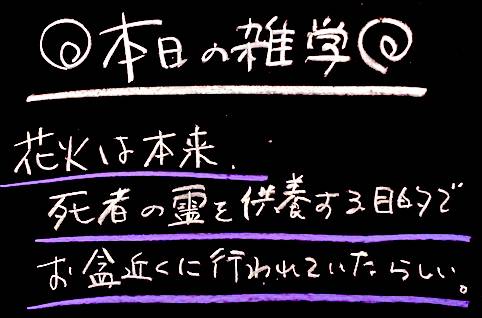 本日の雑学
花火は本来、
死者の霊を供養する目的で
お盆近くに行われていたらしい。